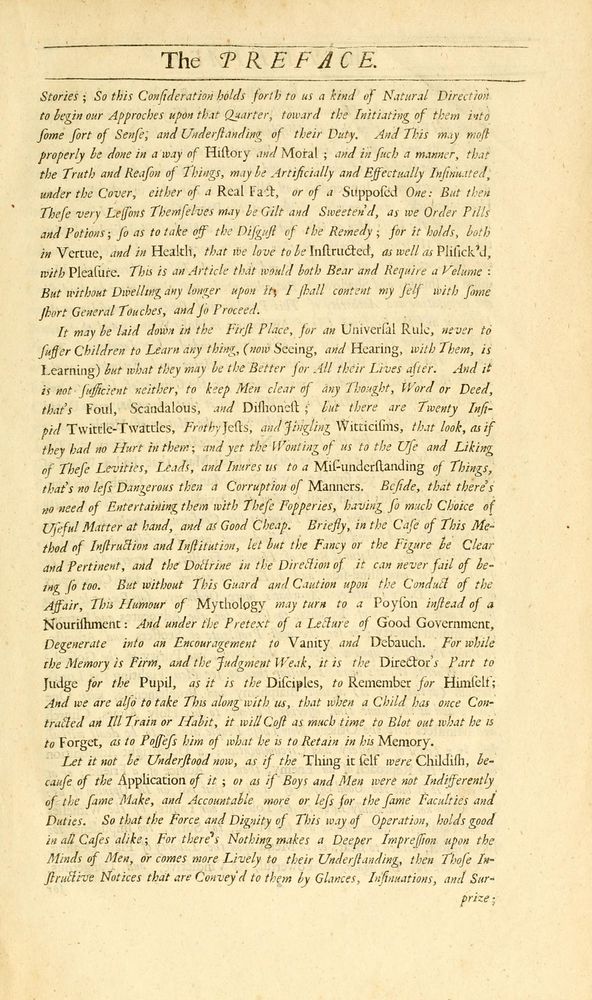 The PREFACE.
Stories; So this Conſideration holds forth to us a kind of Natural Direction
to begin our Approches upon that Quarter, toward the Initiating of them into
ſome ſort of Senſe, and Underſtanding of their Duty. And This may moſt
properly be done in a way of Hiſtory and Moral; and in ſuch a manner, that
the Truth and Reaſon of Things, may be Artificially and Effectually Inſinuated,
under the Cover, either of a Real Fact, or of a Suppoſed One: But then
Theſe very Leſſons Themſelves may be Gilt and Sweeten'd, as we Order Pills
and Potions; ſo as to take off the Diſguſt of the Remedy; for it holds, both
in Vertue, and in Health, that we love to be Inſtructed, as well as Pliſick'd,
with Pleaſure. This is an Article that would both Bear and Require a Volume:
But without Dwelling any longer upon it, I ſhall content my ſelf with ſome
ſhort General Touches, and ſo Proceed.
It may be laid down in the Firſt Place, for an Univerſal Rule, never to
ſuffer Children to Learn any thing, (now Seeing, and Hearing, with Them, is
Learning) but what they may be the Better for All their Lives after. And it
is not ſufficient neither, to keep Men clear of any Thought, Word or Deed,
that's Foul, Scandalous, and Diſhoneſt; but there are Twenty Inſi-
pid Twittle-Twattles, Frothy Jeſts, and Jingling Witticiſms, that look, as if
they had no Hurt in them; and yet the Wonting of us to the Uſe and Liking
of Theſe Levities, Leads, and Inures us to a Miſ-underſtanding of Things,
that's no leſs Dangerous then a Corruption of Manners. Beſide, that there's
no need of Entertaining them with Theſe Fopperies, having ſo much Choice of
Uſeful Matter at hand, and as Good Cheap. Briefly, in the Caſe of This Me-
thod of Inſtruction and Inſtitution, let but the Fancy or the Figure be Clear
and Pertinent, and the Doctrine in the Direction of it can never fail of be-
ing ſo too. But without This Guard and Caution upon the Conduct of the
Affair, This Humour of Mythology may turn to a Poyſon inſtead of a
Nouriſhment: And under the Pretext of a Lecture of Good Government,
Degenerate into an Encouragement to Vanity and Debauch. For while
the Memory is Firm, and the Judgment Weak, it is the Director's Part to
Judge for the Pupil, as it is the Diſciples, to Remember for Himſelf;
And we are alſo to take This along with us, that when a Child has once Con-
tracted an Ill Train or Habit, it will Coſt as much time to Blot out what he is
to Forget, as to Poſſeſs him of what he is to Retain in his Memory.
Let it not be Underſtood now, as if the Thing it ſelf were Childiſh, be-
cauſe of the Application of it; or as if Boys and Men were not Indifferently
of the ſame Make, and Accountable more or leſs for the ſame Faculties and
Duties. So that the Force and Dignity of This way of Operation, holds good
in all Caſes alike; For there's Nothing makes a Deeper Impreſſion upon the
Minds of Men, or comes more Lively to their Underſtanding, then Thoſe In-
ſtructive Notices that are Convey'd to them by Glances, Inſinuations, and Sur-
prize;